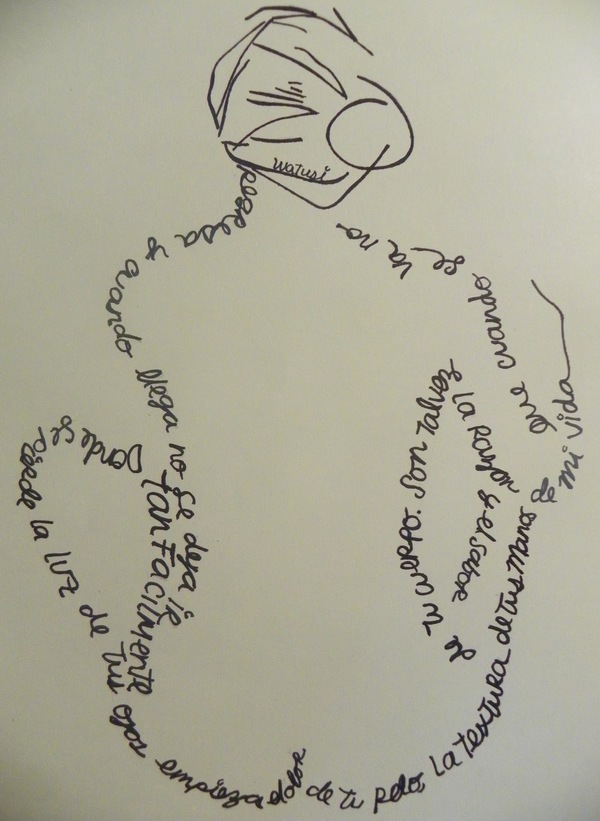 watusi
Donde se
Pierde la luz de tus ojos empieza el olor de tu pelo, La textura de tus manos
y el sabor
de tu cuerpo. Son talvez
la
de mi vida
que cuando se va no
regresa y cuando llega no se deja ir
tan facilmente